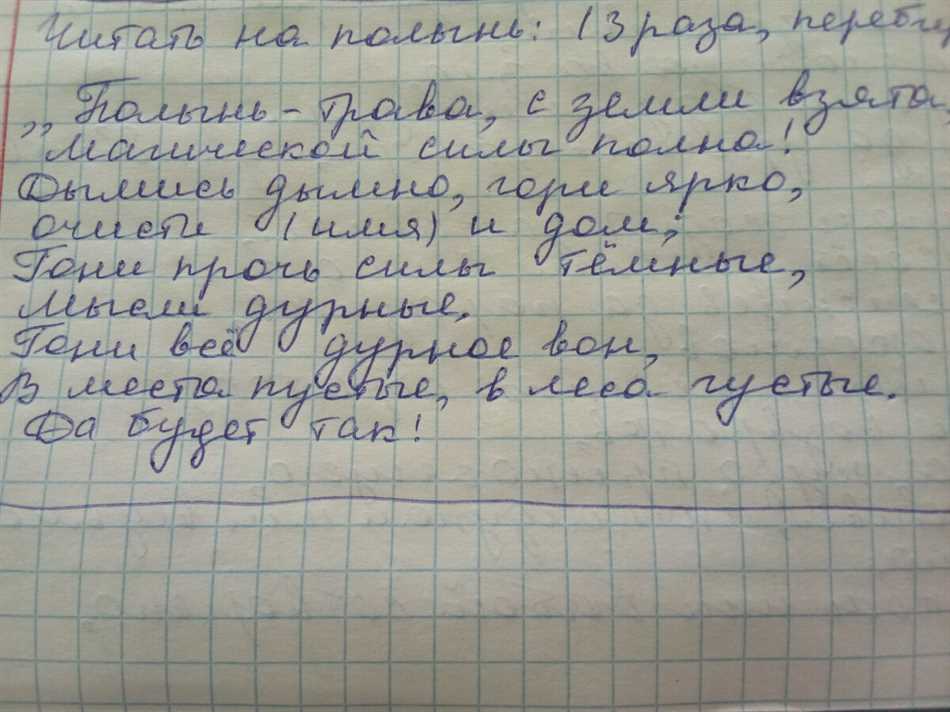 Читать на полынь: (3 раза, перебир
„Полынь-трава, с земли взята,
Магической силы полна!
Дымись дымно, гори ярко,
очисти (имя) и дом;
Гони прочь силы тёмные,
мысли дурные.
Гони всё дурное вон,
В места пустые, в леса густые.
Да будет так!